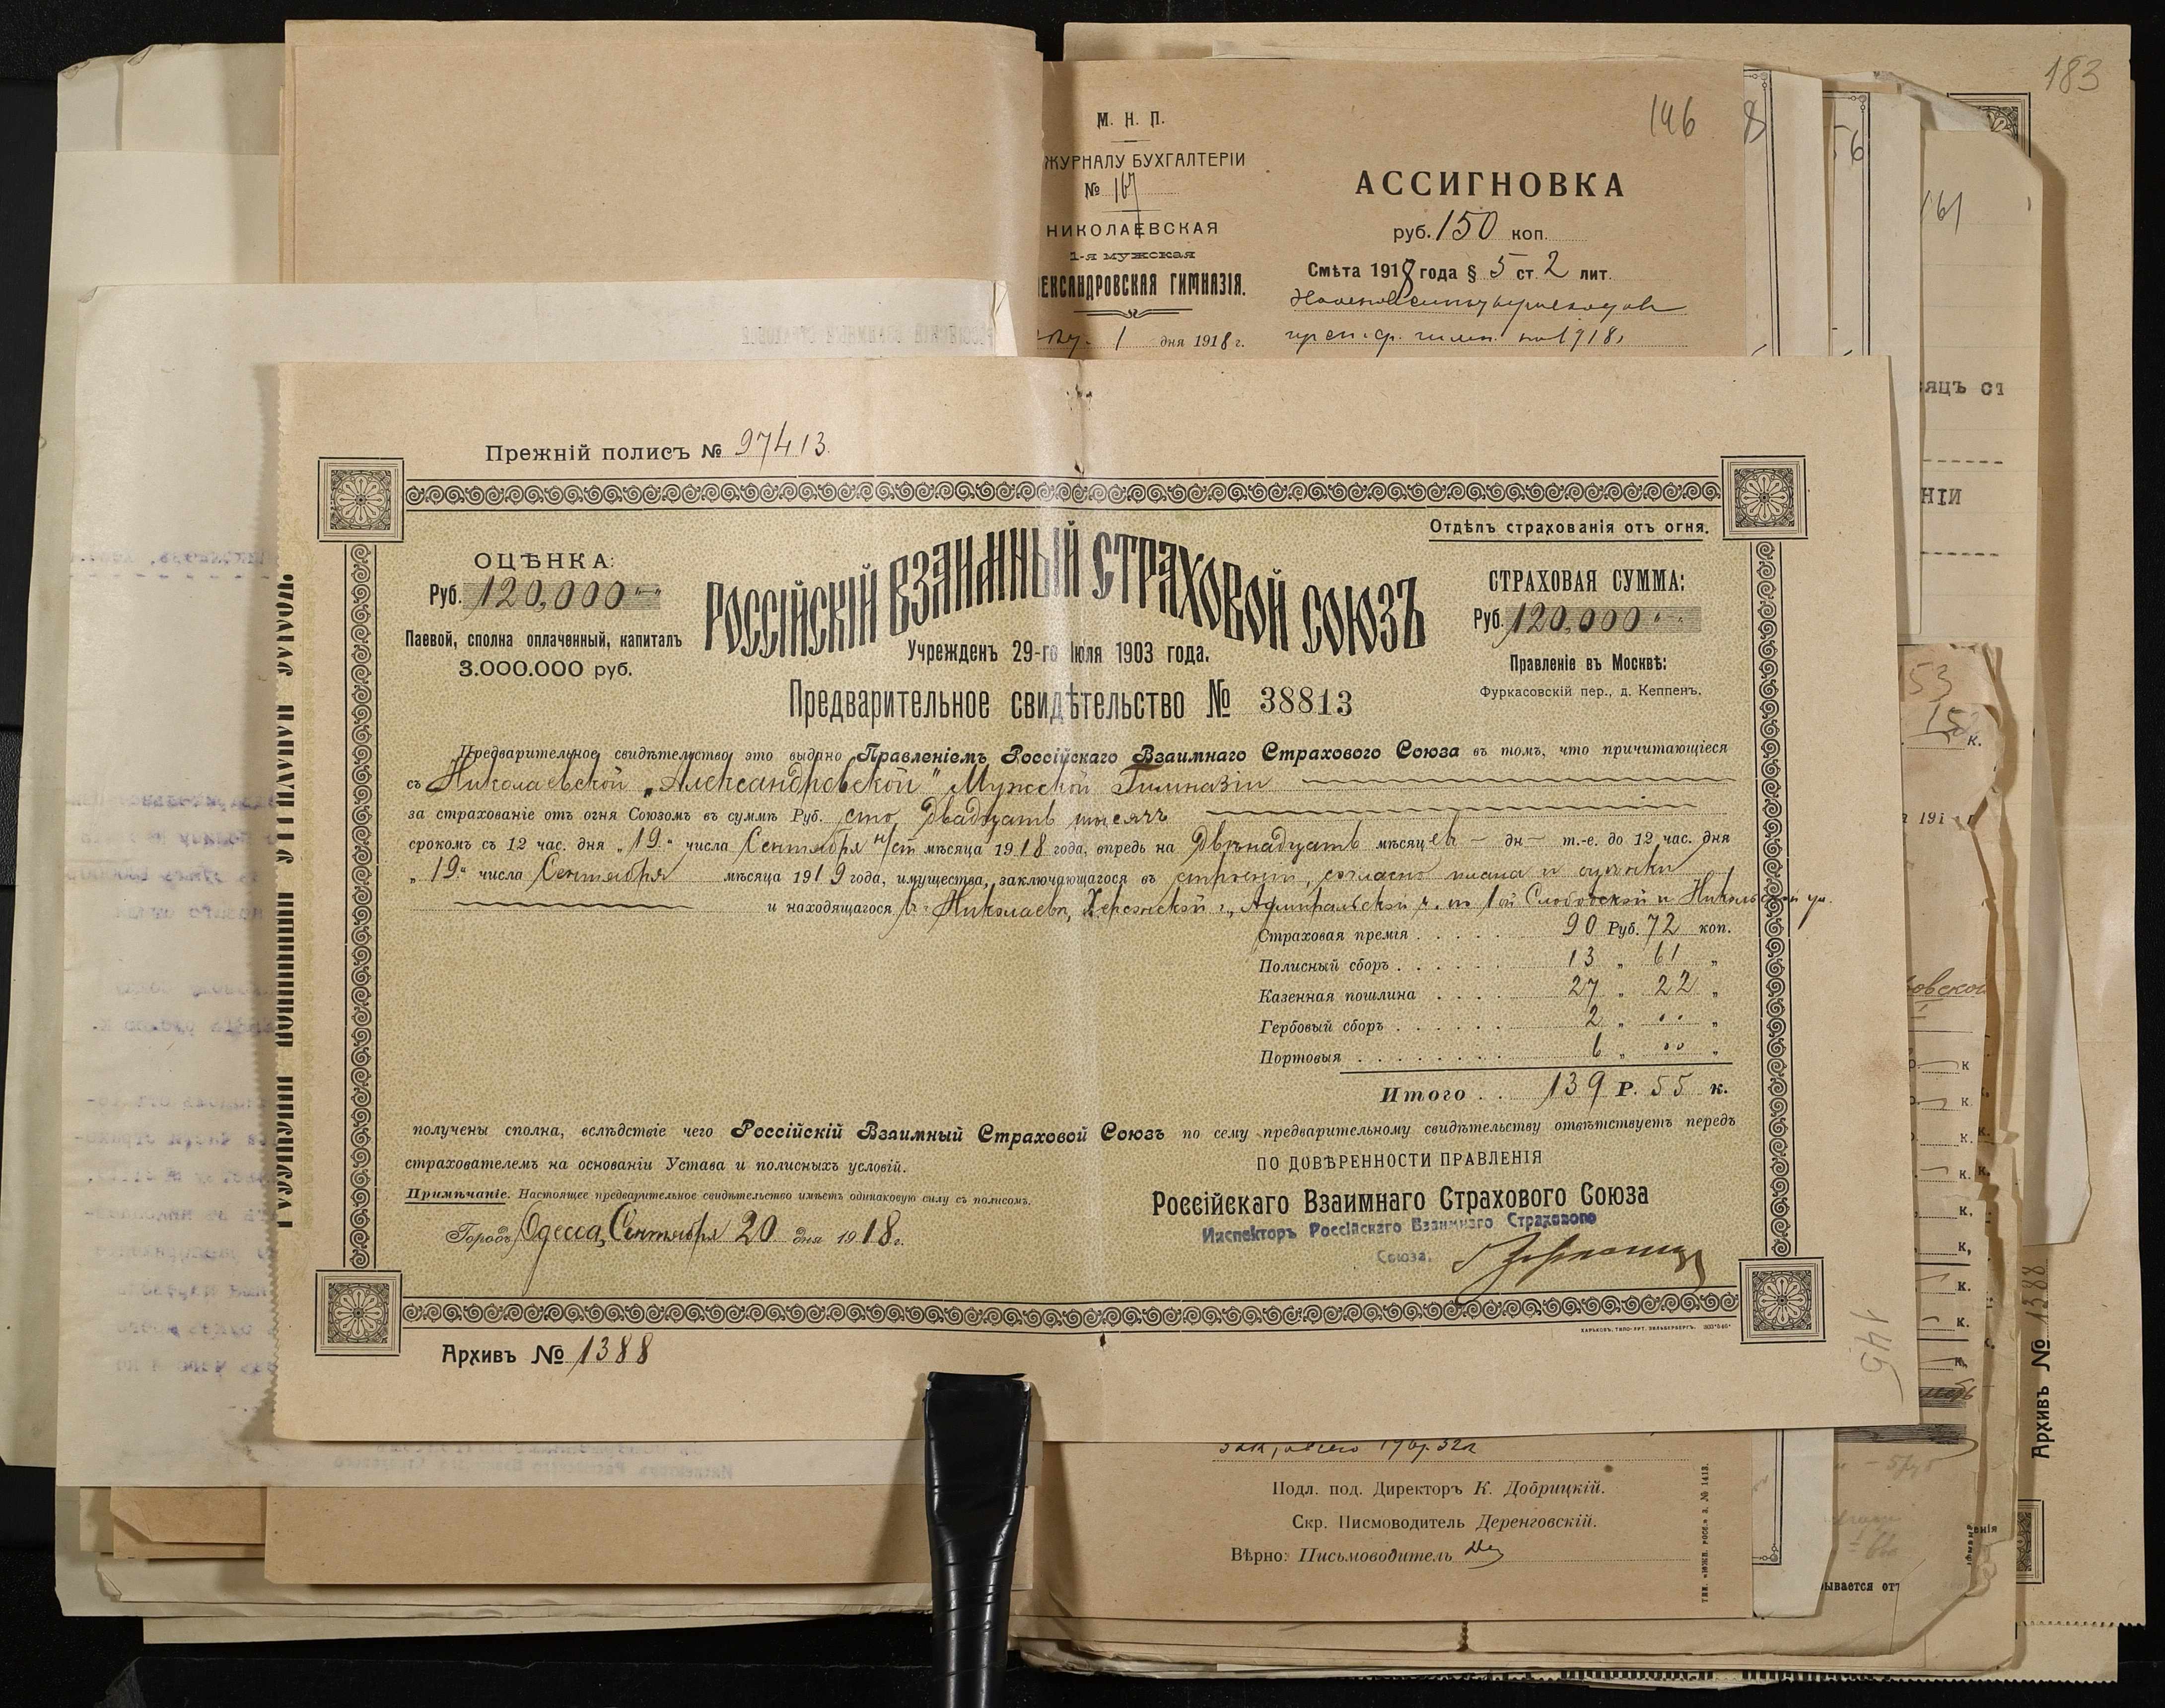 183
146
М. Н. П.
ЖУРНАЛУ БУХГАЛТЕРІИ
№ 167
НИКОЛАЕВСКАЯ
1-я мужская
ЕКСАНДРОВСКАЯ ГИМНАЗІЯ.
1 дня 1918 г.
АССИГНОВКА
руб. 150 коп.
Смѣта 1918 года § 5 ст. 2 лит.
161
яцъ ст
НІИ
Прежній полисъ № 97413.
Отдѣлъ страхованія отъ огня.
ОЦѢНКА:
Руб. 120,000
Паевой, сполна оплаченный, капиталъ
3.000.000 руб.
РОССІЙСКІЙ ВЗАИМНЫЙ СТРАХОВОЙ СОЮЗЪ
Учрежденъ 29-го Іюля 1903 года.
СТРАХОВАЯ СУММА:
Руб. 120,000
Правленіе въ Москвѣ:
Фуркасовскій пер., д. Кеппенъ.
Предварительное свидѣтельство № 38813
Предварительное свидѣтельство это выдано Правленіемъ Россійскаго Взаимнаго Страхового Союза въ томъ, что причитающіеся
съ Николаевской „Александровской" Мужской Гимназіи
за страхованіе отъ огня Союзомъ въ суммѣ Руб. сто двадцать тысячъ
срокомъ съ 12 час. дня „19" числа Сентября н/ст мѣсяца 1918 года, впредь на двѣнадцать мѣсяцевъ — дн — т.-е. до 12 час. дня
„19" числа Сентября мѣсяца 1919 года, имущества, заключающагося въ строеніи, согласно плана и оцѣнки
и находящагося въ г. Николаевѣ, Херсонской г., Адмиральской ч. по 1ой Слободской и Никольской ул.
Страховая премія . . . . . 90 Руб. 72 коп.
Полисный сборъ . . . . . . 13 „ 61 „
Казенная пошлина . . . . 27 „ 22 „
Гербовый сборъ . . . . . . 2 „ „
Портовыя . . . . . . . . 6 „ „
Итого . . 139 Р. 55 к.
получены сполна, вслѣдствіе чего Россійскій Взаимный Страховой Союзъ по сему предварительному свидѣтельству отвѣтствуетъ передъ
страхователемъ на основаніи Устава и полисныхъ условій.
ПО ДОВѢРЕННОСТИ ПРАВЛЕНІЯ
Россійскаго Взаимнаго Страхового Союза
Инспекторъ Россійскаго Взаимнаго Страхового
Союза.
Примѣчаніе. Настоящее предварительное свидѣтельство имѣетъ одинаковую силу съ полисомъ.
Городъ Одесса, Сентября 20 дня 1918 г.
Архивъ № 1388
145
Архивъ № 1388
Подл. под. Директоръ К. Добрицкій.
Скр. Письмоводитель Деренговскій.
Вѣрно: Письмоводитель